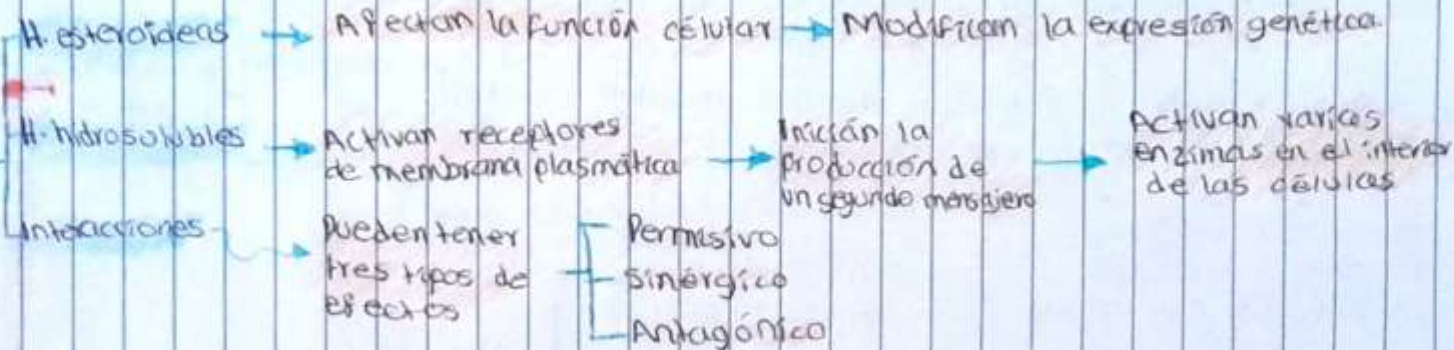 H. esteroideas → Afectan la función célular → Modifican la expresión genética.
H. hidrosolubles → Activan receptores
de membrana plasmática → Inician la
producción de
un segundo mensajero → Activan varias
enzimas en el interior
de las células
Interacciones → Pueden tener
tres tipos de
efectos
Permisivo
Sinérgico
Antagónico